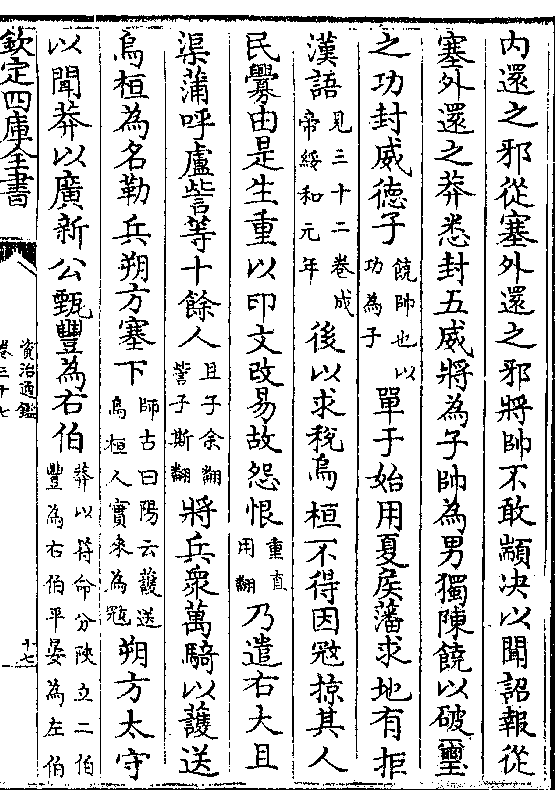 内還之邪從塞外還之邪將帥不敢顓决以聞詔報從
塞外還之莽悉封五威將為子帥為男獨陳饒以破璽
之功封威德子饒帥也以功為子單于始用夏侯藩求地有拒
漢語見三十二卷成帝綏和元年後以求稅烏桓不得因冦掠其人
民釁由是生重以印文改易故怨恨重直用翻乃遣右大且
渠蒲呼盧訾等十餘人且子余翻訾子斯翻將兵衆萬騎以護送
烏桓為名勒兵朔方塞下師古曰陽云護送烏桓人實來為冦朔方太守
以聞莽以廣新公甄豐為右伯莽以符命分陜立二伯豐為右伯平晏為左伯
欽定四庫全書
資治通鑑
卷三十七
十七